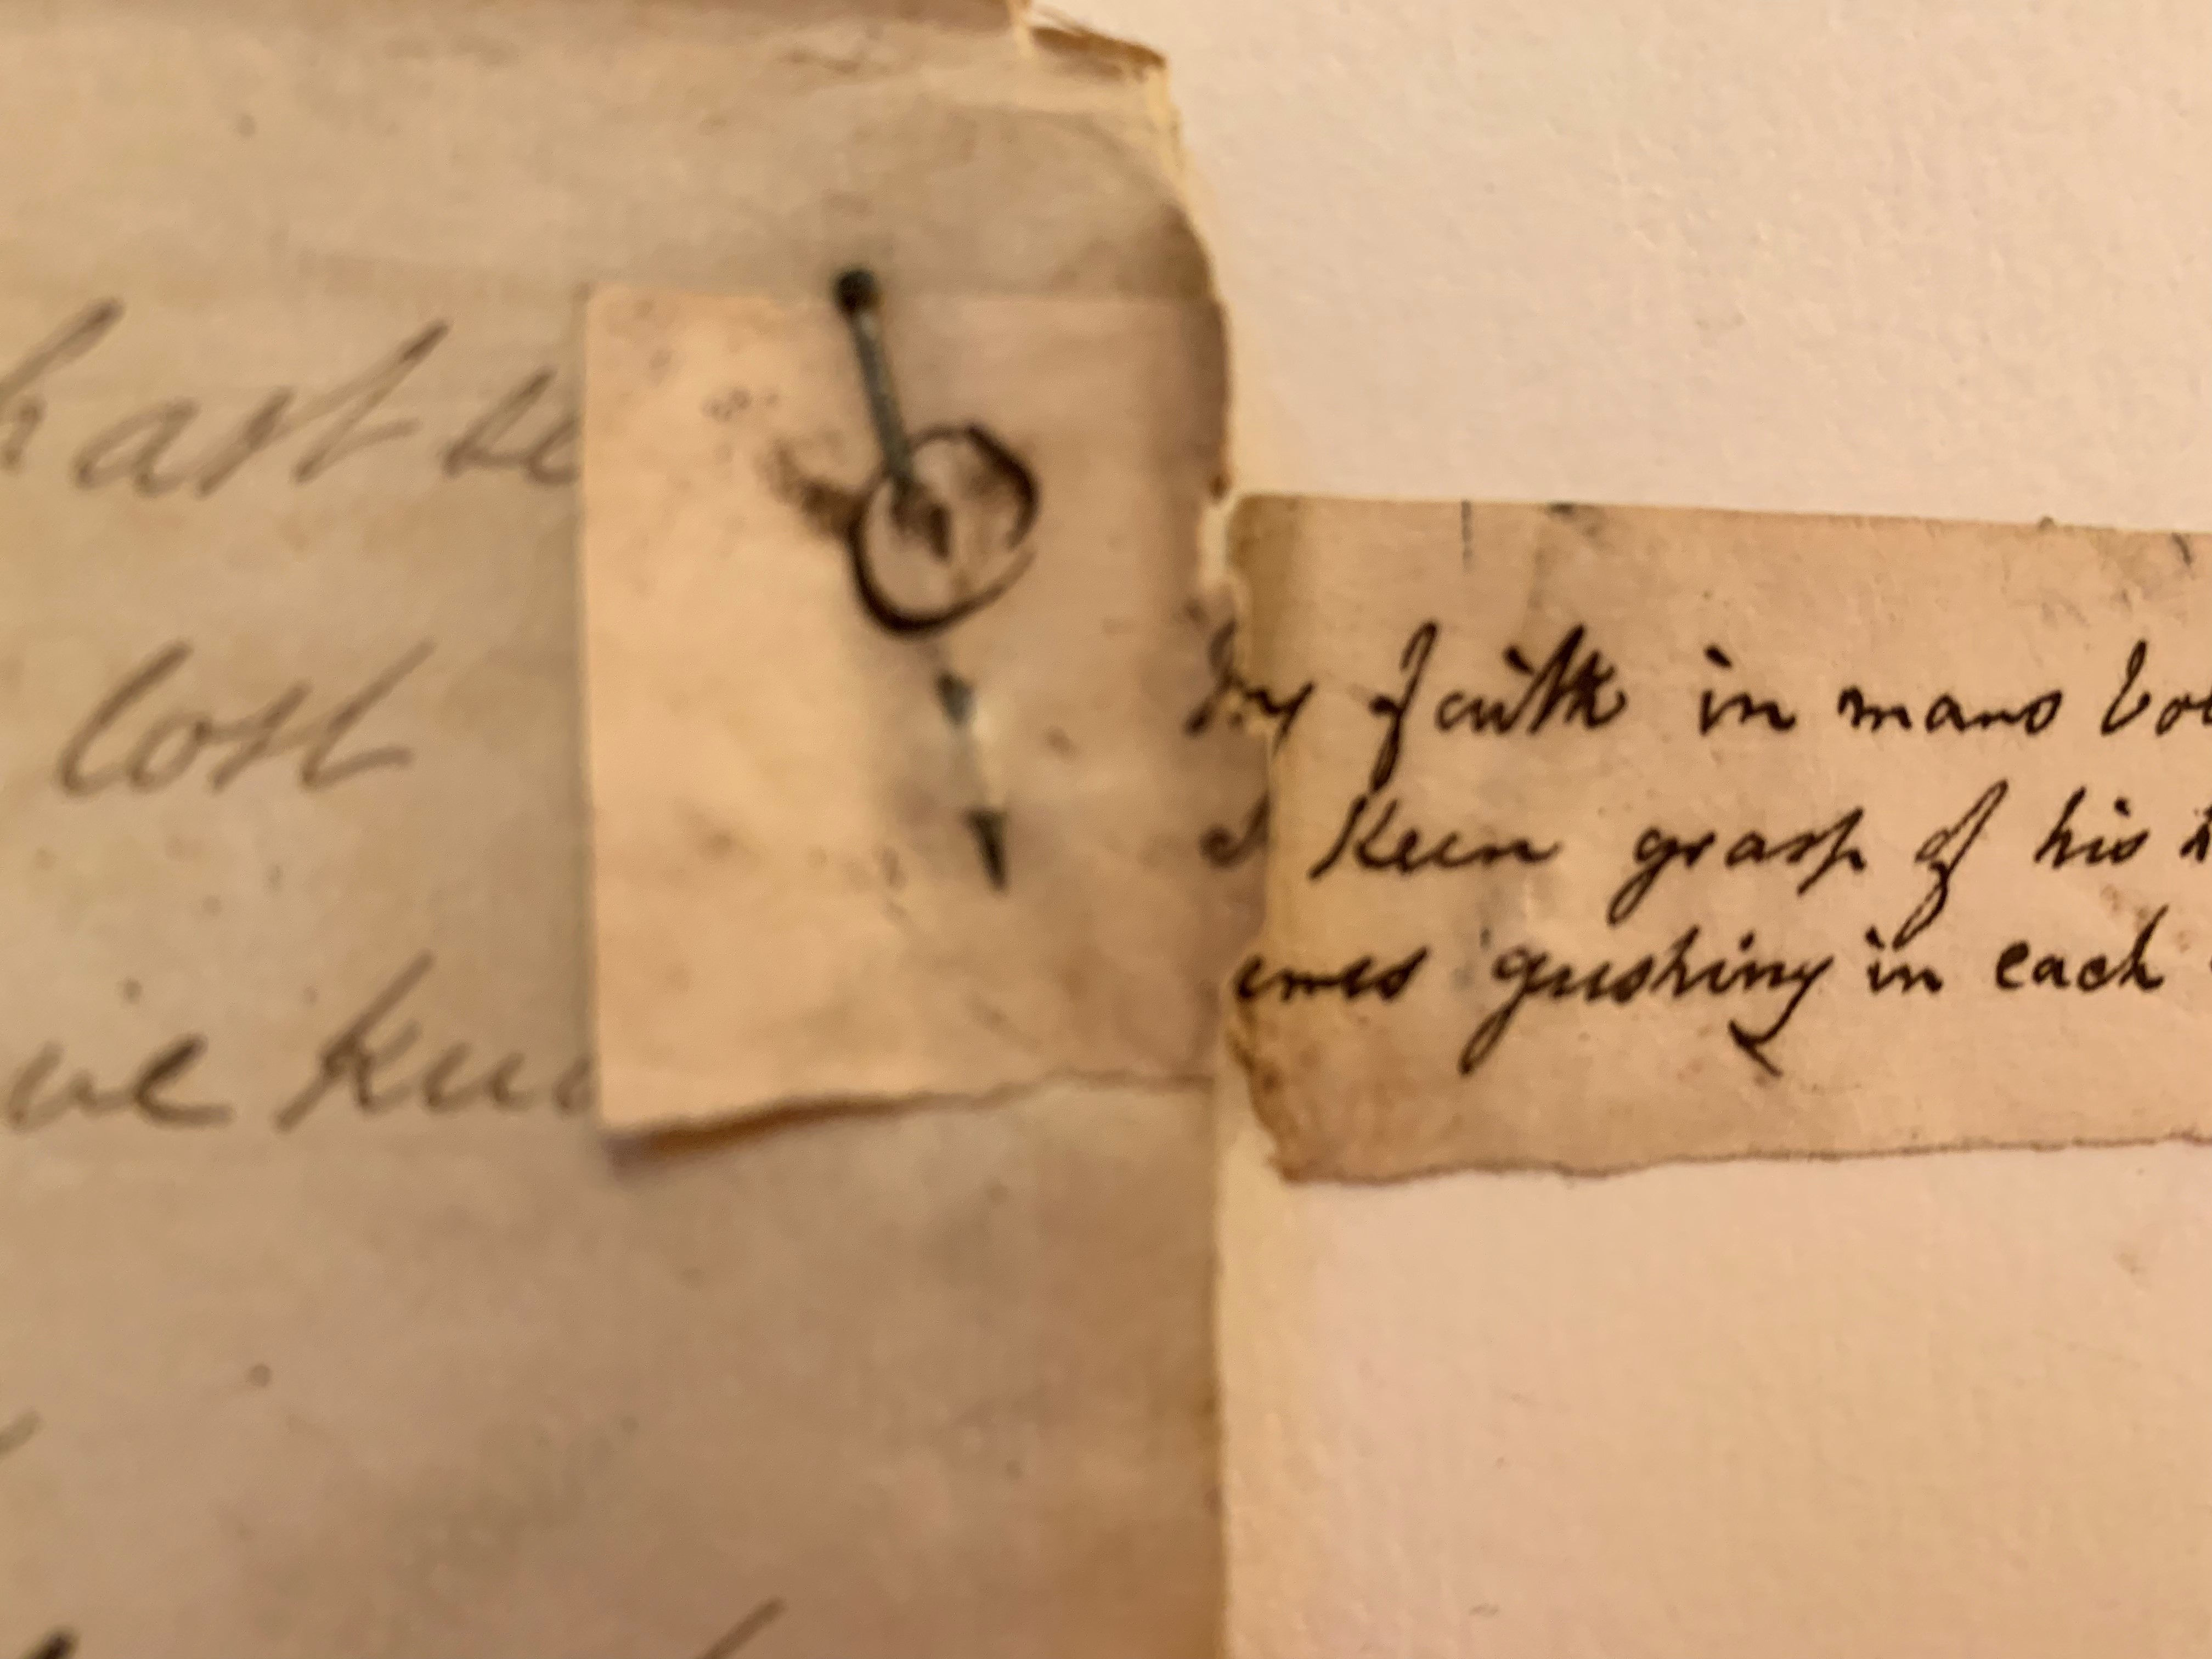 hast se
lost
ive kno
My faith in mans
A keen grasp of his
emes gushing in each